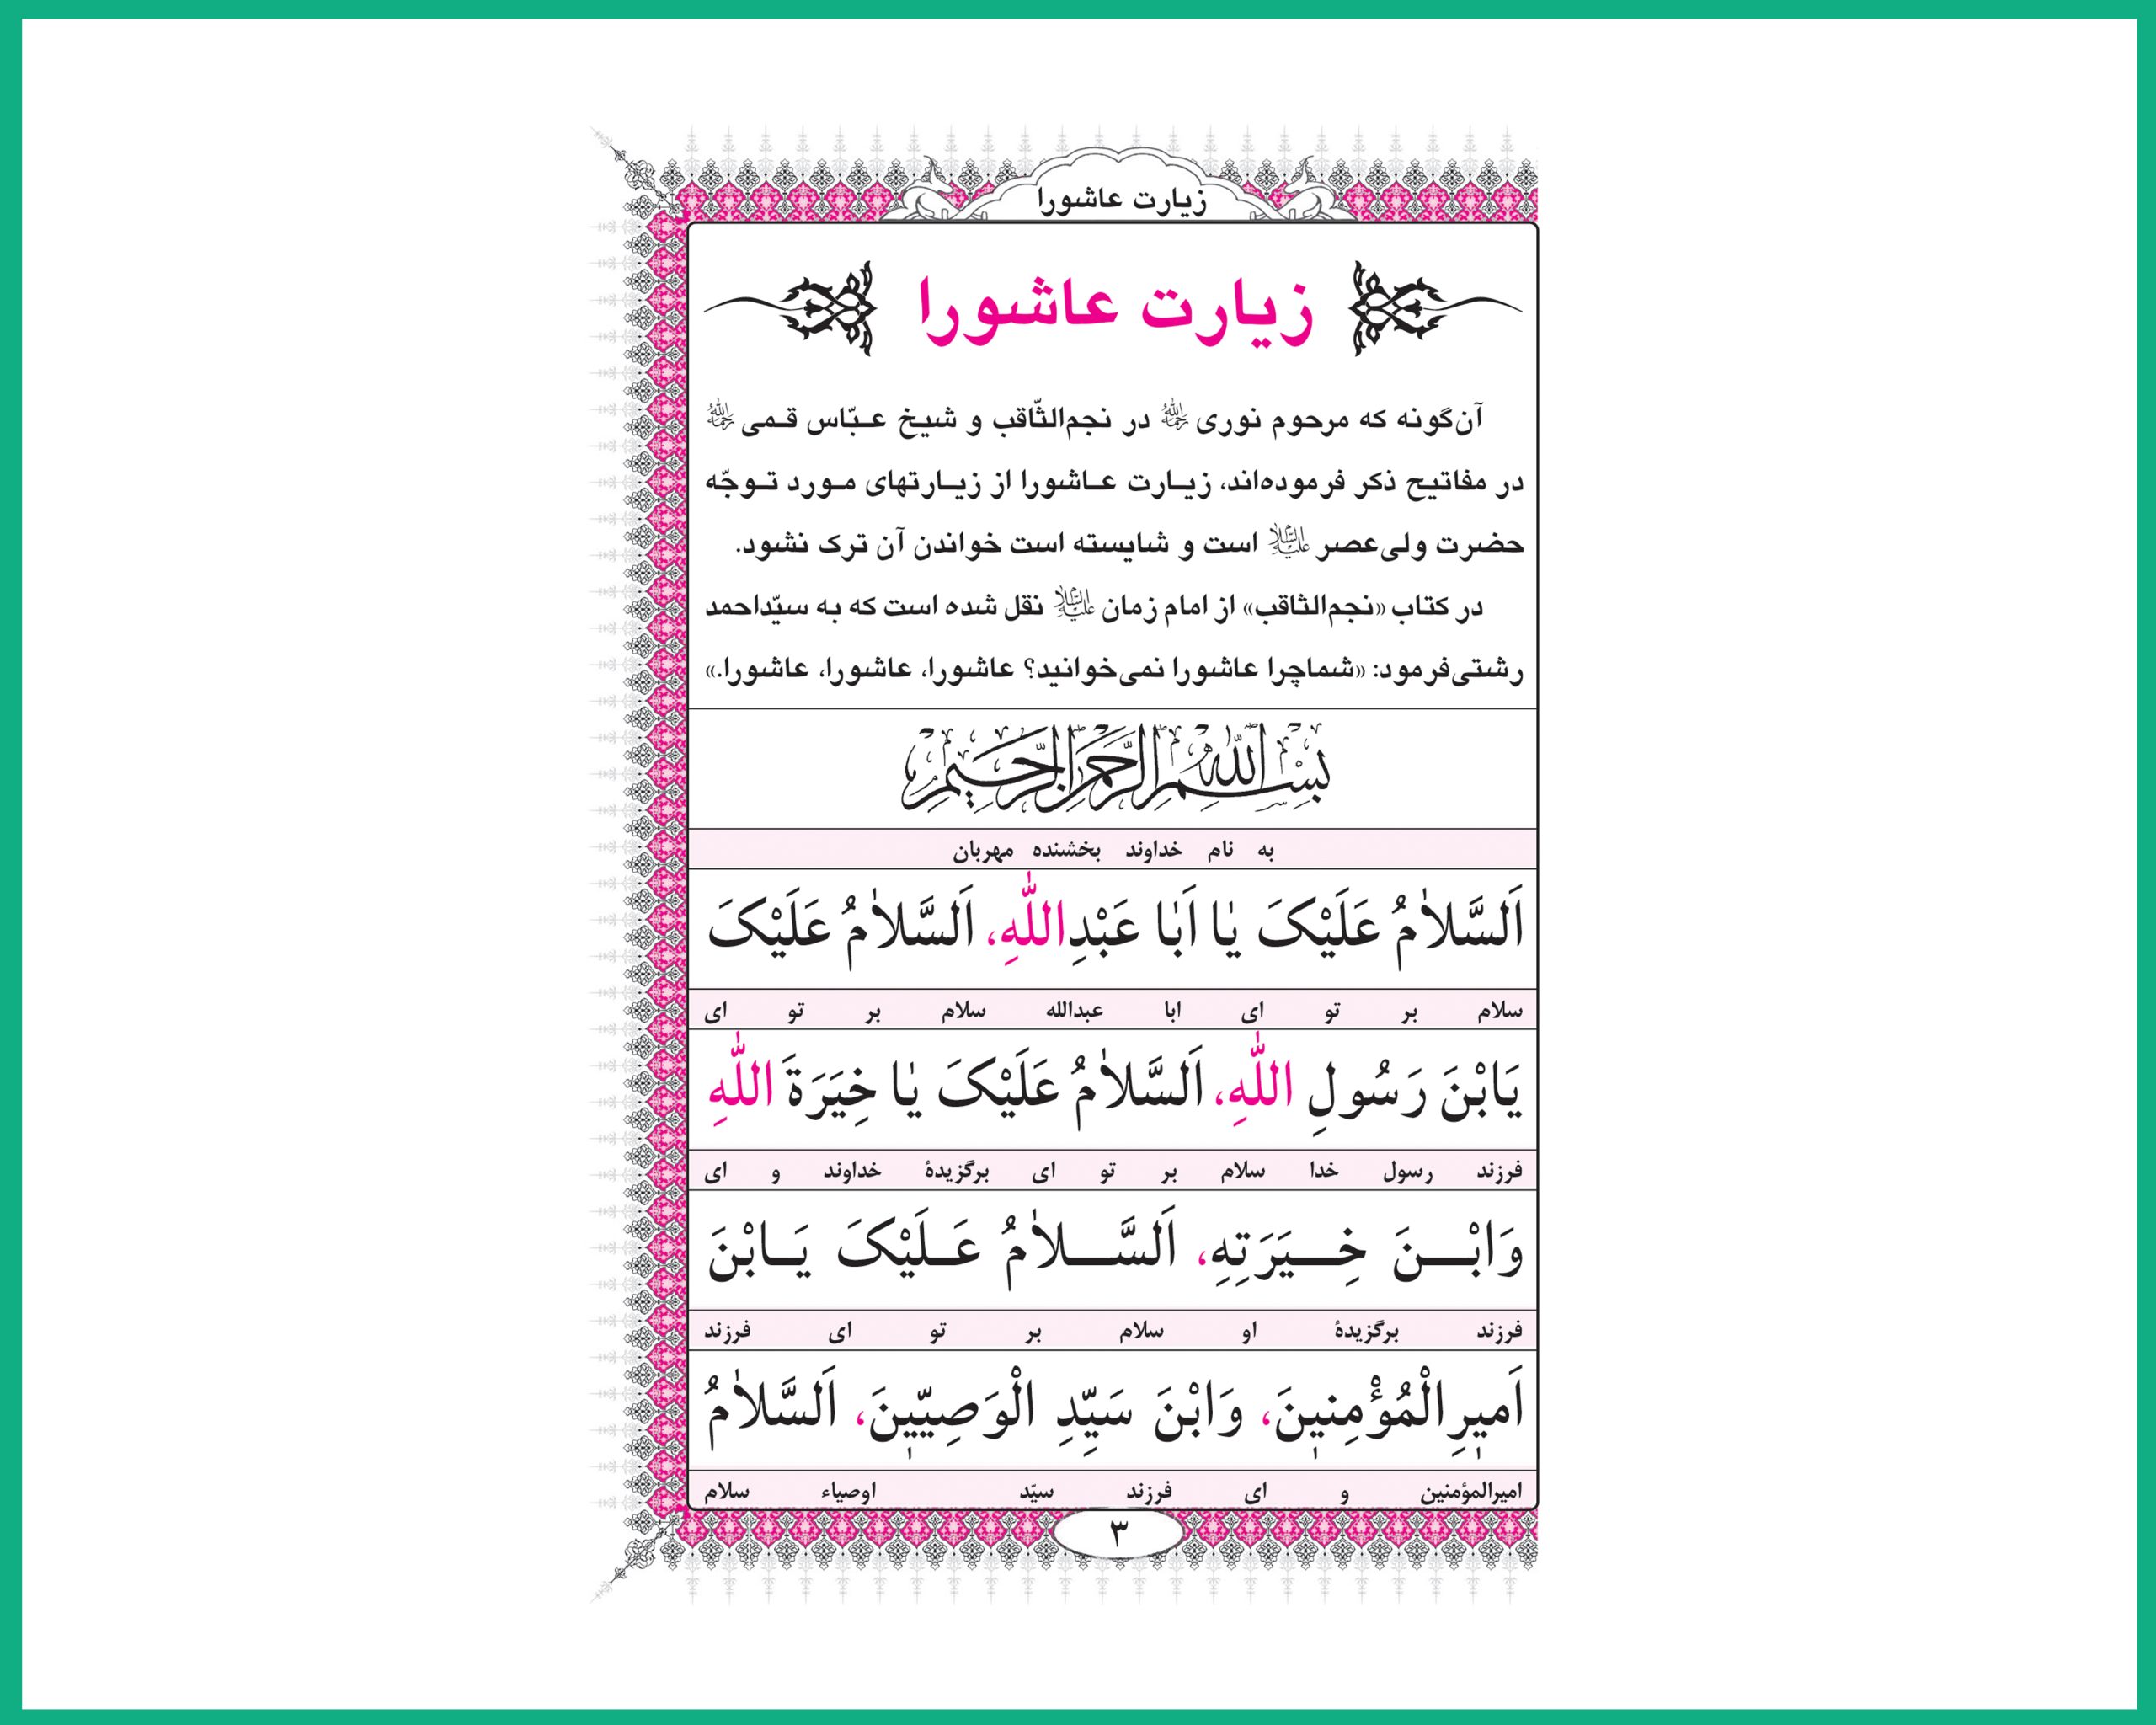 زیارت عاشورا
زیارت عاشورا
آن‌گونه که مرحوم نوری رحمه‌الله در نجم‌الثّاقب و شیخ عبّاس قمی رحمه‌الله
در مفاتیح ذکر فرموده‌اند، زیارت عاشورا از زیارتهای مورد توجّه
حضرت ولی‌عصر علیه‌السلام است و شایسته است خواندن آن ترک نشود.
در کتاب «نجم‌الثاقب» از امام زمان علیه‌السلام نقل شده است که به سیّداحمد
رشتی‌فرمود: «شماچرا عاشورا نمی‌خوانید؟ عاشورا، عاشورا، عاشورا.»
بِسْمِ اللّٰهِ الرَّحْمٰنِ الرَّحِیمِ
به نام خداوند بخشنده مهربان
اَلسَّلاٰمُ عَلَیْکَ یٰا اَبٰا عَبْدِاللّٰهِ، اَلسَّلاٰمُ عَلَیْکَ
سلام بر تو ای ابا عبدالله سلام بر تو ای
یَابْنَ رَسُولِ اللّٰهِ، اَلسَّلاٰمُ عَلَیْکَ یٰا خِیَرَةَ اللّٰهِ
فرزند رسول خدا سلام بر تو ای برگزیدهٔ خداوند و ای
وَابْنَ خِیَرَتِهِ، اَلسَّلاٰمُ عَلَیْکَ یَابْنَ
فرزند برگزیدهٔ او سلام بر تو ای فرزند
اَمیٖرِالْمُؤْمِنیٖنَ، وَابْنَ سَیِّدِ الْوَصِیّیٖنَ، اَلسَّلاٰمُ
امیرالمؤمنین و ای فرزند سیّد اوصیاء سلام
۳